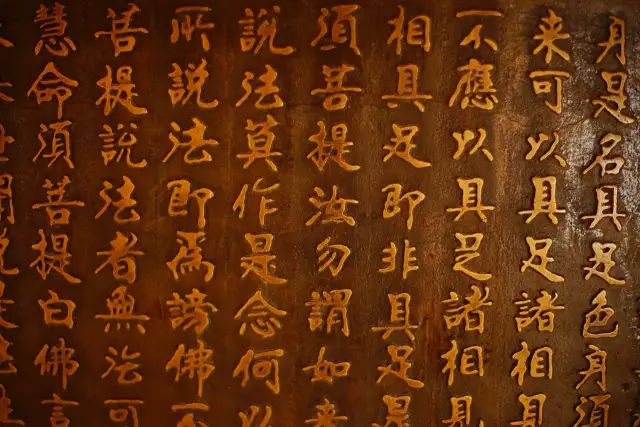 身是名具足色身須
来可以具足諸相見
不應以具足諸相見
相具足即非具足是
須菩提汝勿謂如来
説法莫作是念何以
所説法即爲謗佛不
菩提説法者無法可
慧命須菩提白佛言